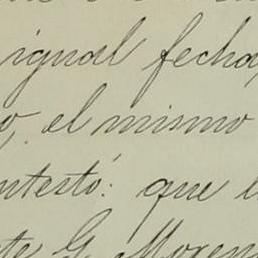 igual fecha,
o, el mismo
ntestó: que
te G. Moren